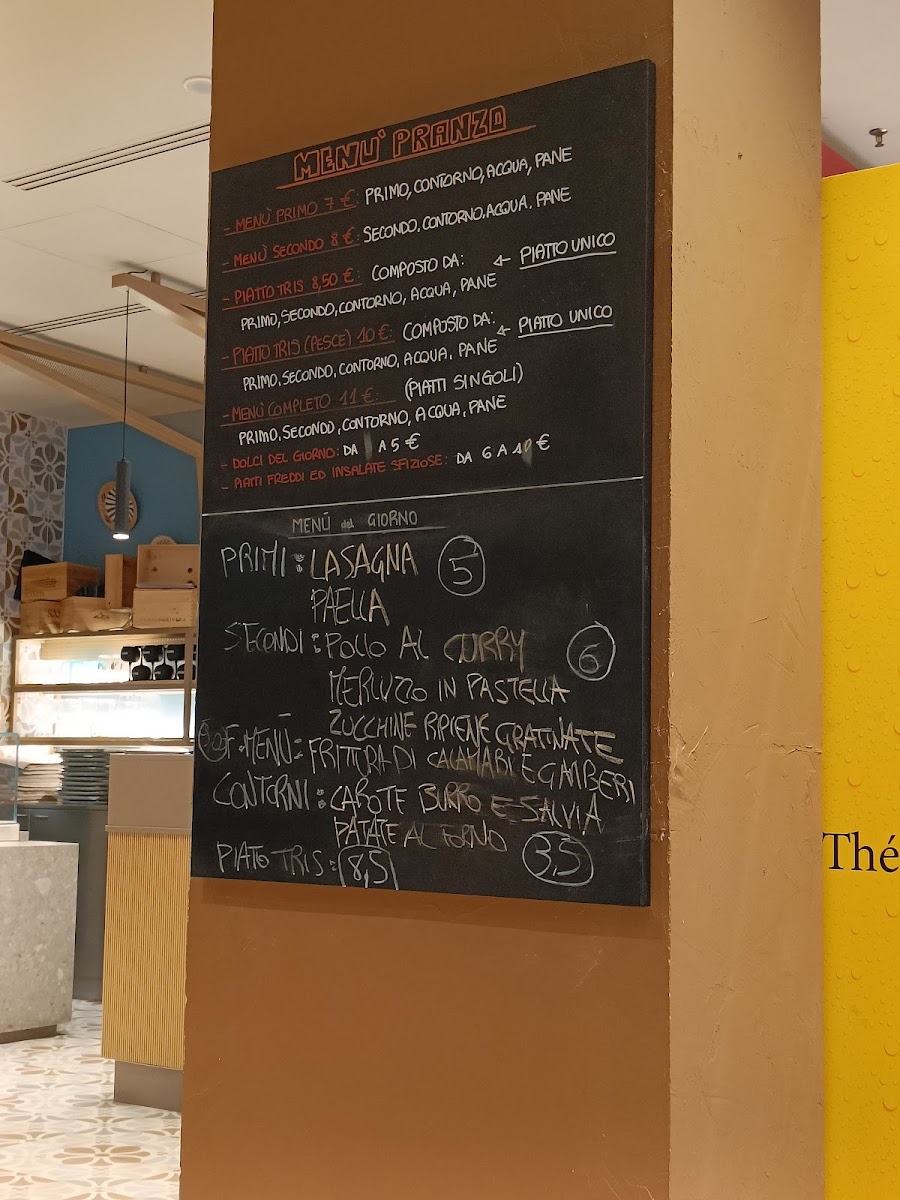 MENÙ PRANZO
- MENÙ PRIMO 7 €: PRIMO, CONTORNO, ACQUA, PANE
- MENÙ SECONDO 8 €: SECONDO, CONTORNO, ACQUA, PANE
- PIATTO TRIS 8,50 €: COMPOSTO DA: ← PIATTO UNICO
PRIMO, SECONDO, CONTORNO, ACQUA, PANE
- PIATTO TRIS (PESCE) 10 €: COMPOSTO DA: ← PIATTO UNICO
PRIMO, SECONDO, CONTORNO, ACQUA, PANE
- MENÙ COMPLETO 11 €: (PIATTI SINGOLI)
PRIMO, SECONDO, CONTORNO, ACQUA, PANE
- DOLCI DEL GIORNO: DA A 5 €
- PIATTI FREDDI ED INSALATE SFIZIOSE: DA 6 A 10 €
MENÙ del GIORNO
PRIMI: LASAGNA 5
PAELLA
SECONDI: POLLO AL CURRY 6
MERLUZZO IN PASTELLA
ZUCCHINE RIPIENE GRATINATE
F. MENÙ: FRITTURA DI CALAMARI E GAMBERI
CONTORNI: CAROTE BURRO E SALVIA
PATATE AL FORNO 3,5
PIATTO TRIS: 8,5
Thé